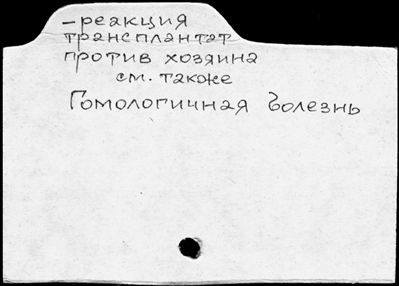 –реакция
трансплантат
против хозяина
см. также
Гомологичная болезнь